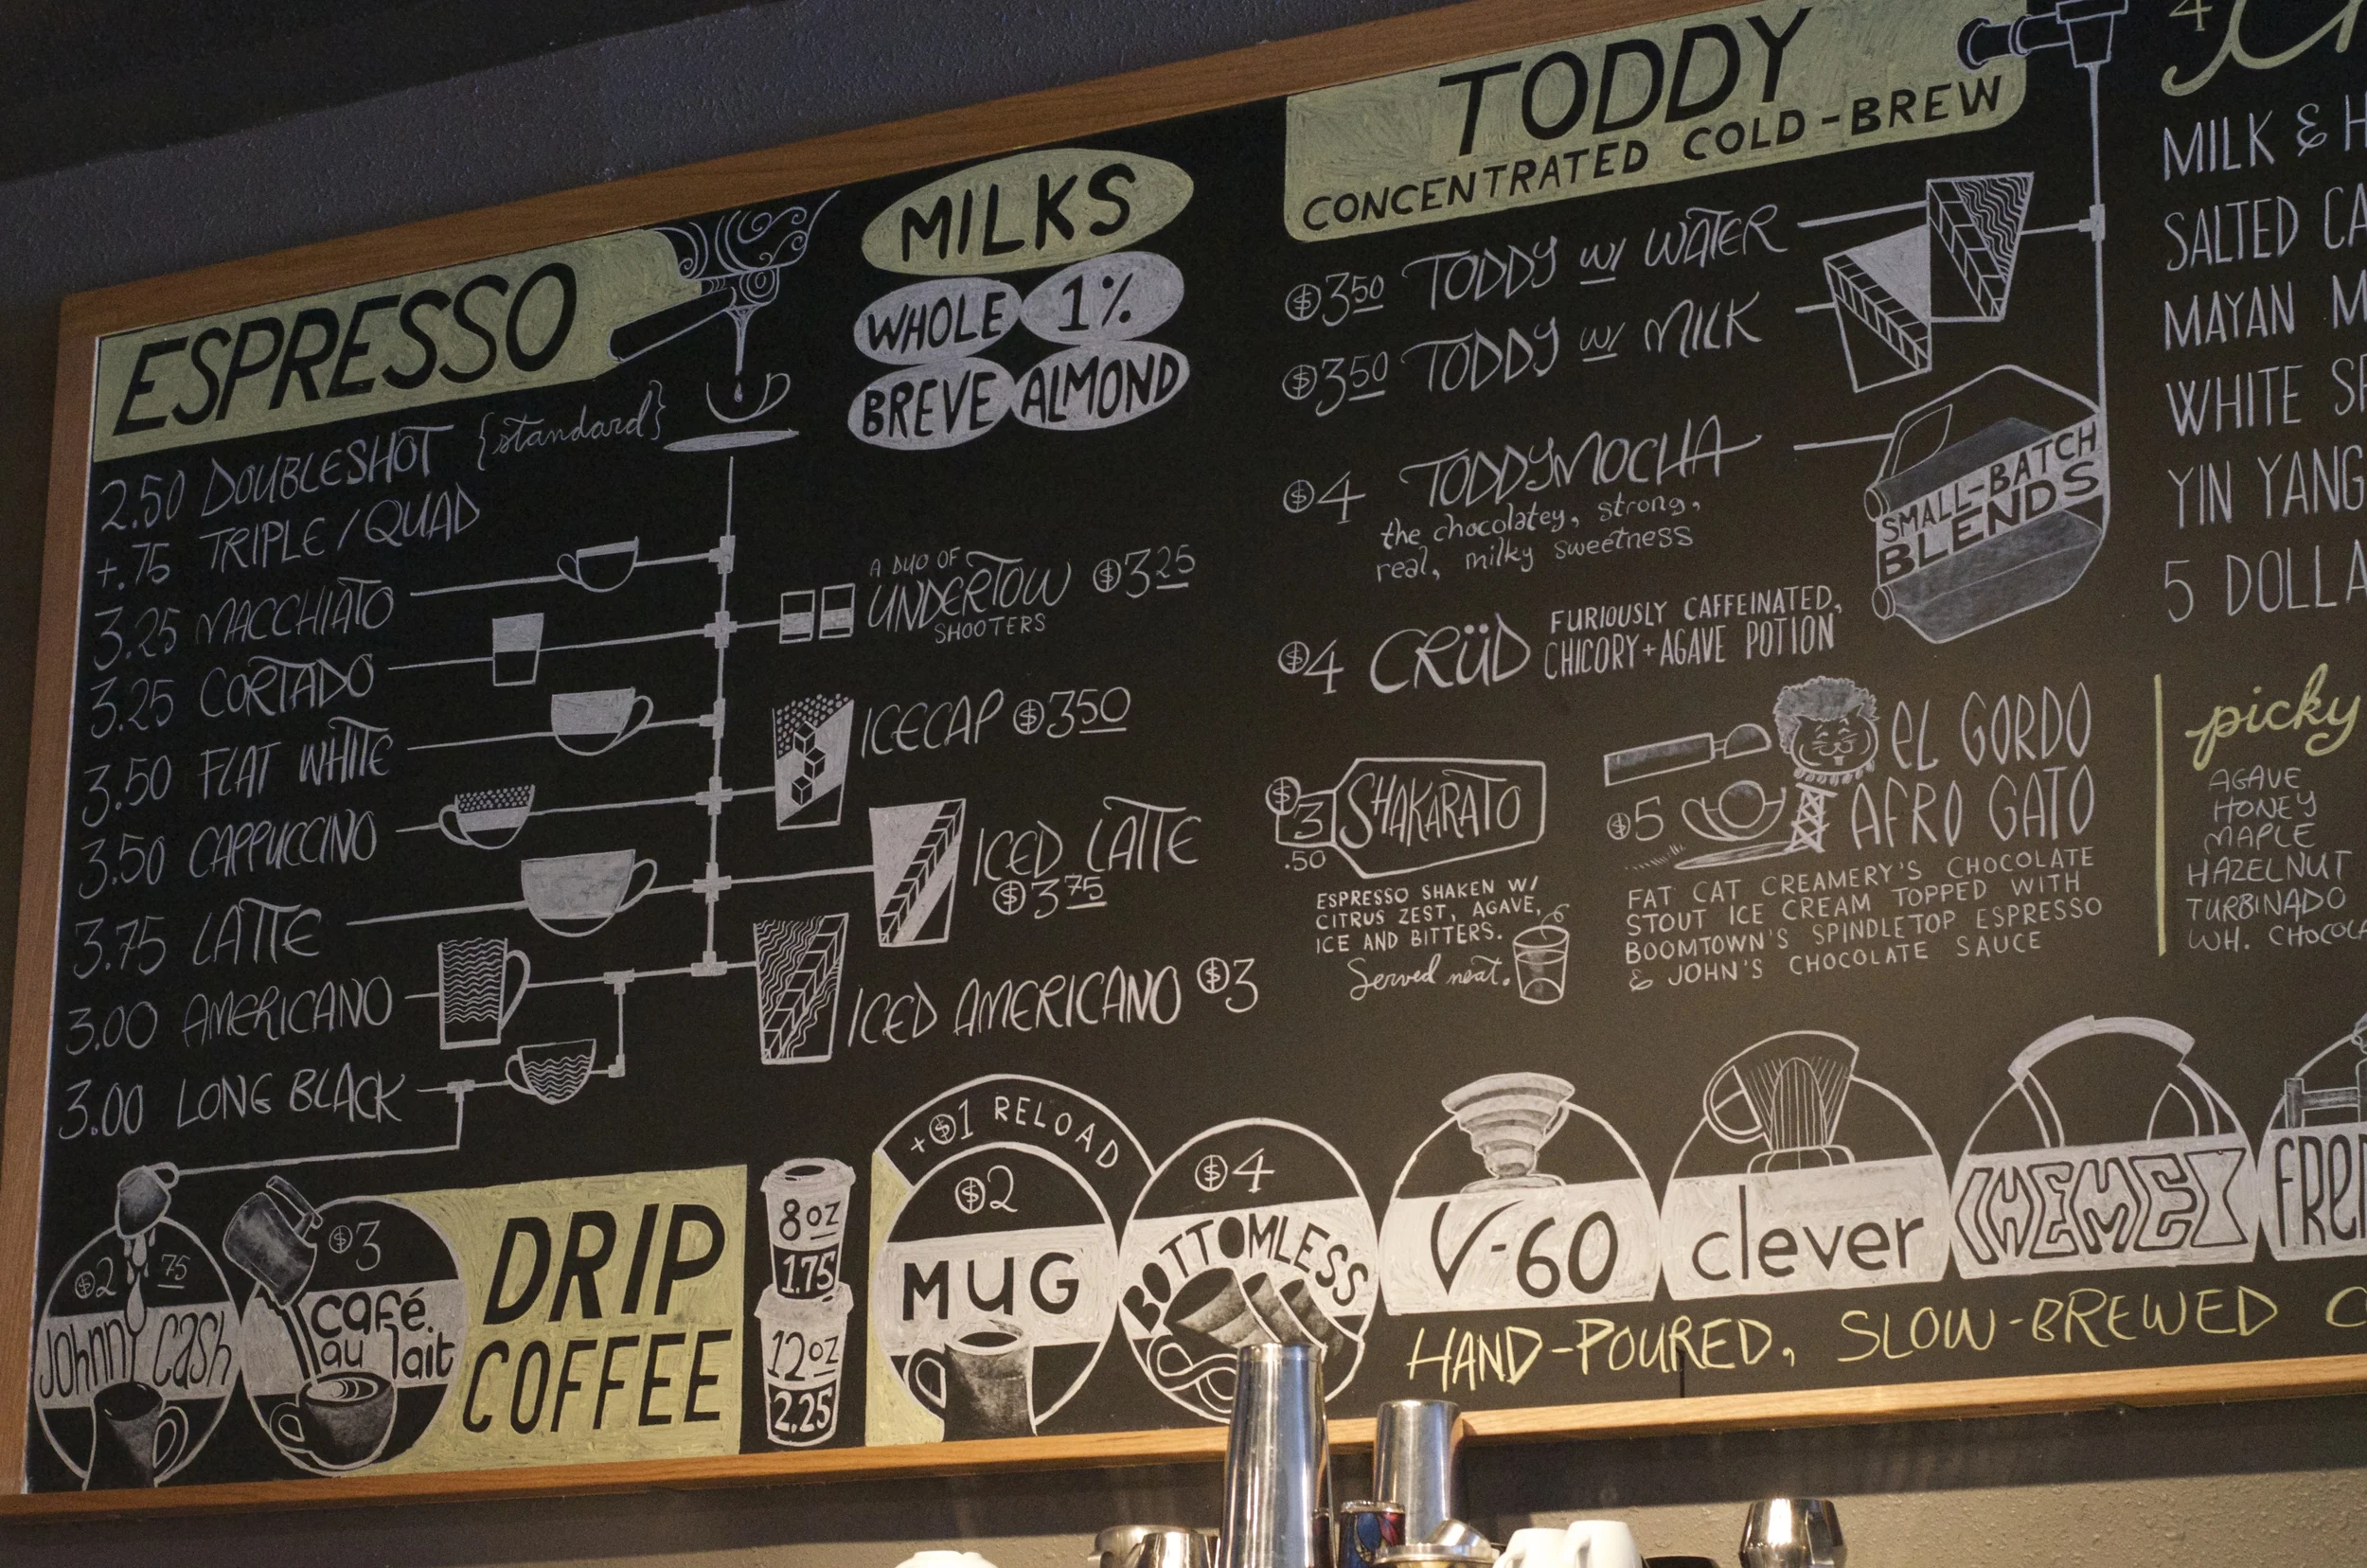 ESPRESSO
2.50 DOUBLESHOT {standard}
+.75 TRIPLE/QUAD
3.25 MACCHIATO
3.25 CORTADO
3.50 FLAT WHITE
3.50 CAPPUCCINO
3.75 LATTE
3.00 AMERICANO
3.00 LONG BLACK
MILKS
WHOLE 1%
BREVE ALMOND
A DUO OF
UNDERTOW $3.25
SHOOTERS
ICECAP $3.50
ICED LATTE
$3.75
ICED AMERICANO $3
TODDY
CONCENTRATED COLD-BREW
$3.50 TODDY w/ WATER
$3.50 TODDY w/ MILK
$4 TODDYMOCHA
the chocolatey, strong,
real, milky sweetness
SMALL-BATCH
BLENDS
$4 CRÜD FURIOUSLY CAFFEINATED,
CHICORY+AGAVE POTION
$3.50 SHAKARATO
ESPRESSO SHAKEN W/
CITRUS ZEST, AGAVE,
ICE AND BITTERS.
Served neat.
EL GORDO
$5 AFRO GATO
FAT CAT CREAMERY'S CHOCOLATE
STOUT ICE CREAM TOPPED WITH
BOOMTOWN'S SPINDLETOP ESPRESSO
& JOHN'S CHOCOLATE SAUCE
4
MILK &
SALTED
MAYAN
WHITE
YIN YANG
5
picky
AGAVE
HONEY
MAPLE
HAZELNUT
TURBINADO
WH.
$2.75
Johnny Cash
$3
café
au lait
DRIP
COFFEE
8oz
1.75
12oz
2.25
+$1 RELOAD
$2
MUG
$4
BOTTOMLESS
V-60
clever
CHEMEX
HAND-POURED, SLOW-BREWED